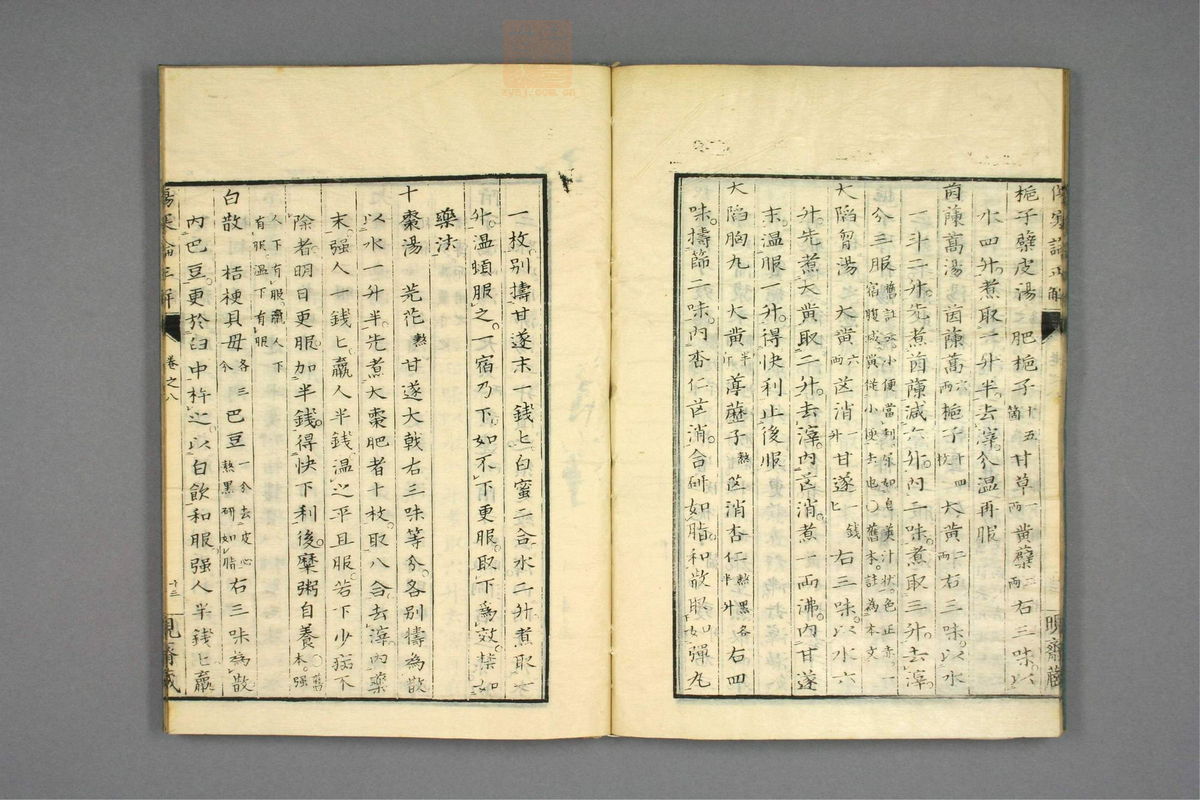 梔子蘗皮湯 肥梔子十五箇甘草一兩黃蘗二兩右三味以
水四升煮取一升半去滓分溫再服
茵蔯蒿湯 茵蔯蒿六兩梔子十四枚大黃二兩右三味以水
一斗二升先煮茵蔯減六升內二味煮取三升去滓
分三服舊註云小便當利尿如皂莢汁狀色正赤一宿腹減黃從小便去也〇舊本註為本文
大陷胷湯 大黃六兩芒消一升甘遂一錢匕右三味以水六
升先煮大黃取二升去滓內芒消煮一兩沸內甘遂
末溫服一升得快利止後服
大陷胸丸 大黃半斤葶藶子熬芒消杏仁熬黑各半升右四
味擣篩二味內杏仁芒消合研如脂和散取如彈丸
一枚別擣甘遂末一錢匕白蜜二合水二升煮取一
升溫頓服之一宿乃下如不下更服取下為效禁如
藥法
十棗湯 芫花熬甘遂大戟右三味等分各別擣為散
以水一升半先煮大棗肥者十枚取八合去滓內藥
末强人一錢匕羸人半錢溫之平旦服若下少病不
除者明日更服加半錢得快下利後糜粥自養〇舊本强
人下有服羸人下有服溫下有服
白散 桔梗貝母各三分巴豆一分去皮心熬黑研如脂右三味為散
內巴豆更於臼中杵之以白飲和服强人半錢匕羸
卷之八
十三